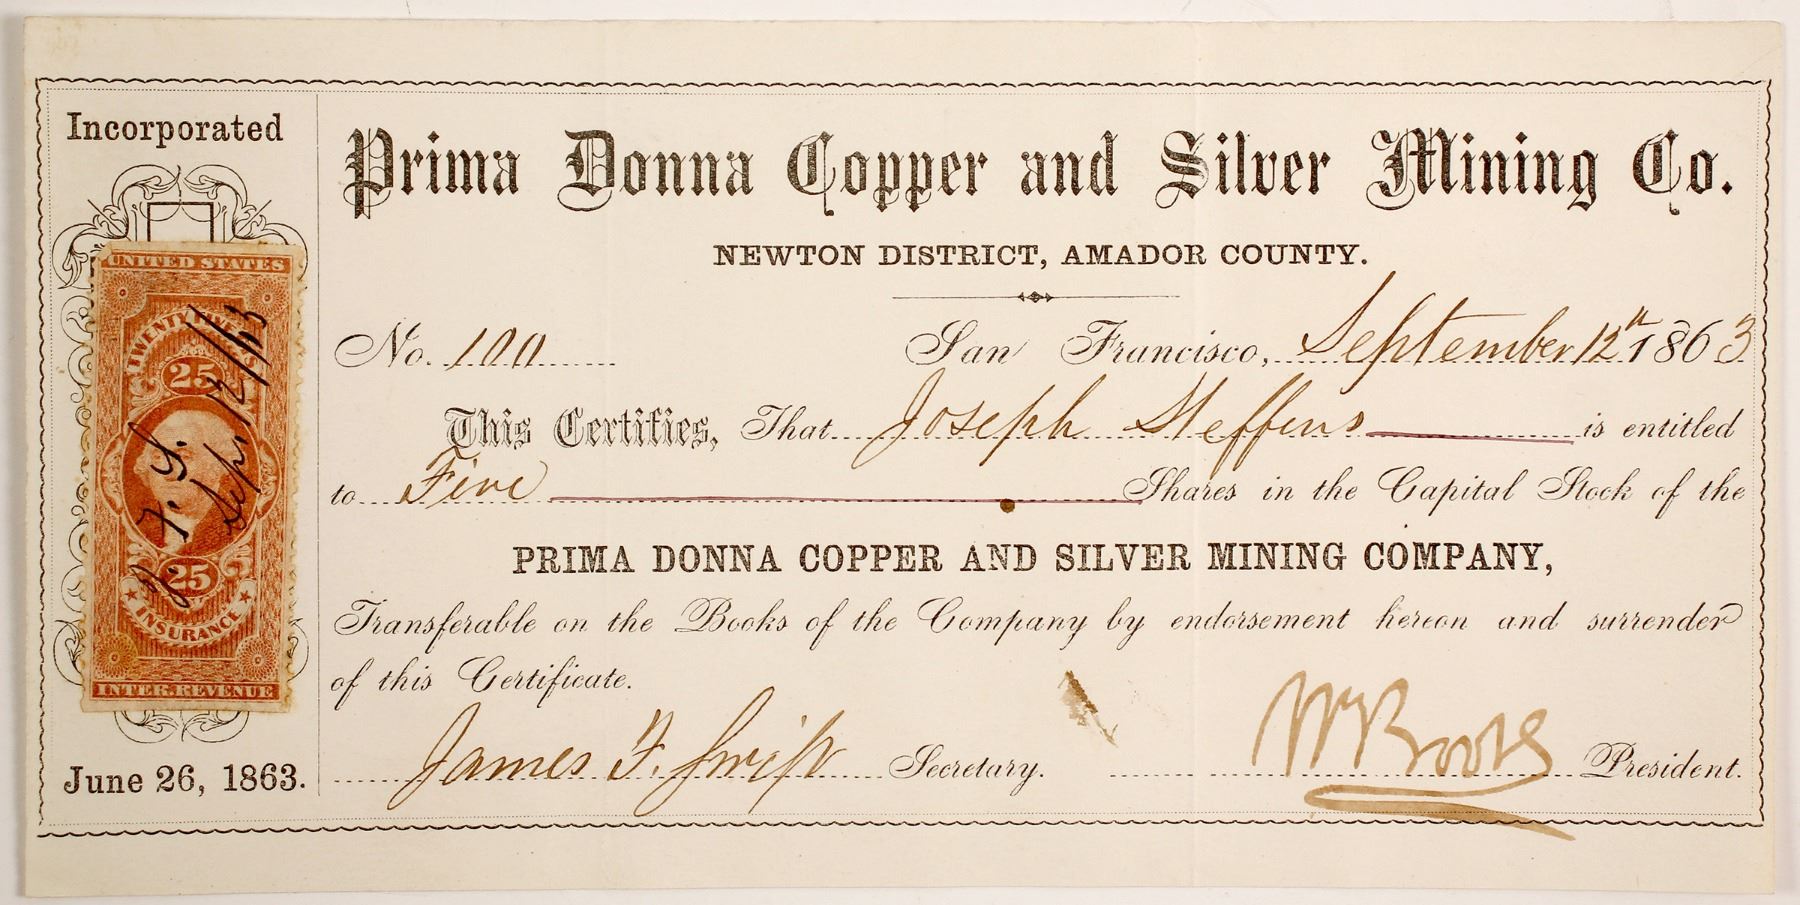 Incorporated
Prima Donna Copper and Silver Mining Co.
NEWTON DISTRICT, AMADOR COUNTY.
No. 100
San Francisco, September 12th 1863
This Certifies, That Joseph Steffens is entitled
to Five Shares in the Capital Stock of the
PRIMA DONNA COPPER AND SILVER MINING COMPANY,
Transferable on the Books of the Company by endorsement hereon and surrender
of this Certificate.
James F. Swift Secretary.
President.
June 26, 1863.
UNITED STATES
TWENTY FIVE
25
25
INSURANCE
INTER. REVENUE
F. S.
Sep. 12/63